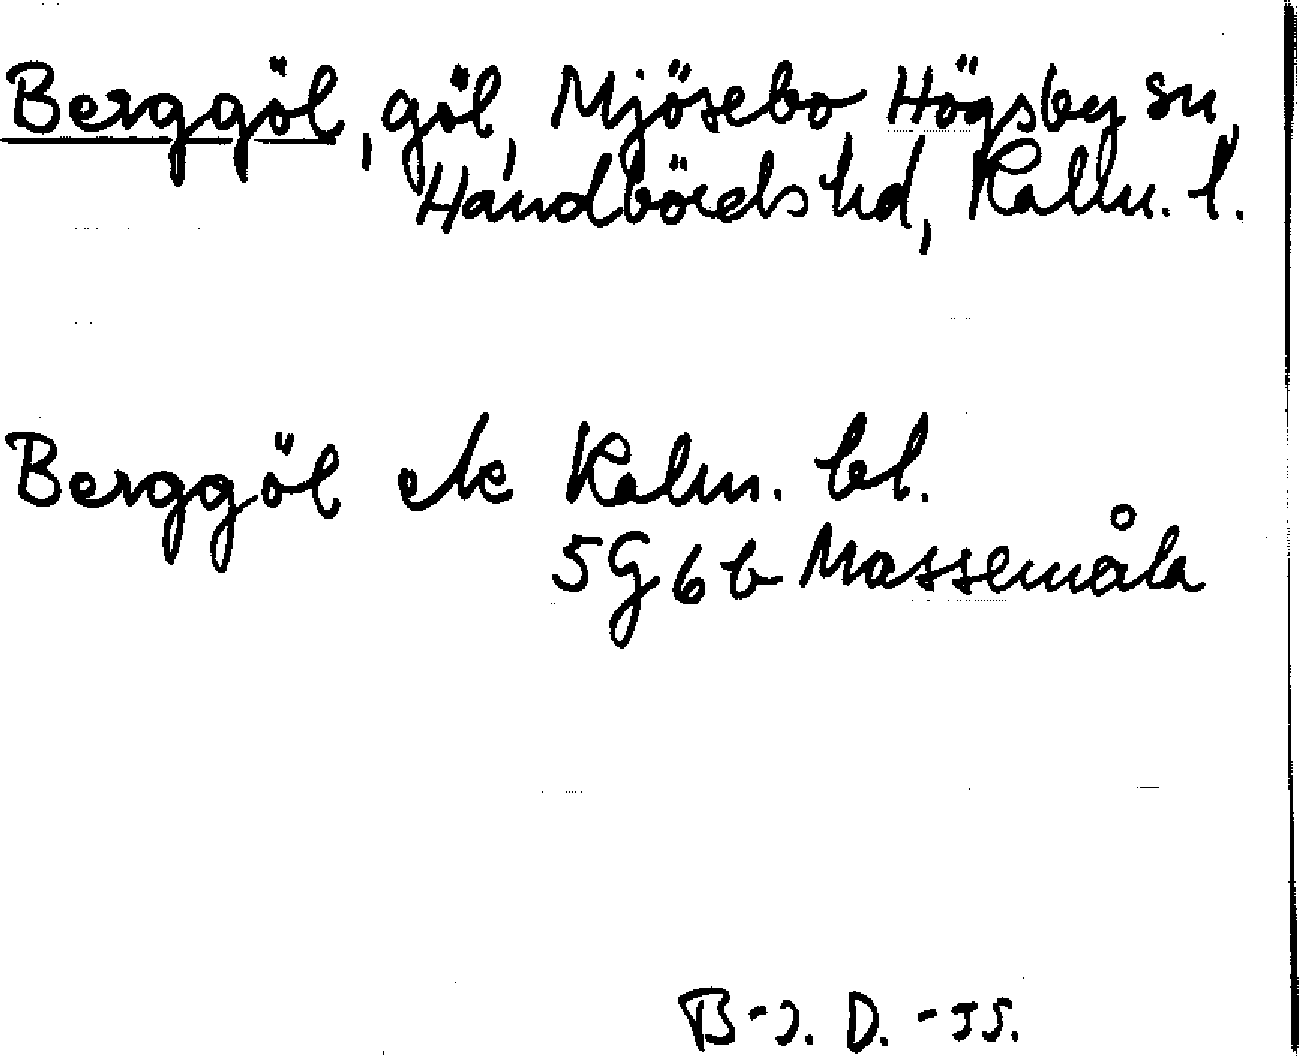 Berggöl, göl, Mjösebo Högsby sn,
Handbörds hd, Kalm. l.
Berggöl ek Kalm. bl.
5G6b Mossemåla
B-J. D. -55.